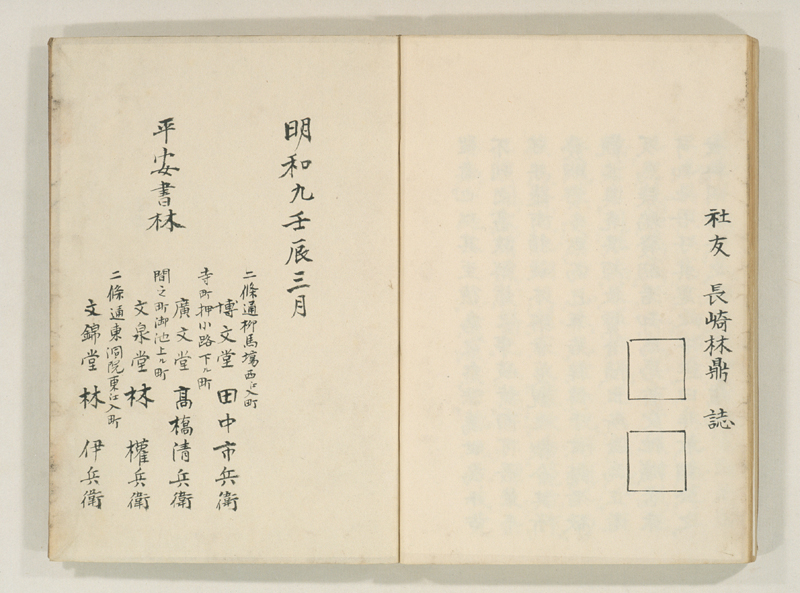 社友 長崎林鼎 誌
明和九壬辰三月
平安書林
二條通柳馬塲西江入町
博文堂 田中市兵衛
寺町押小路下ル町
廣文堂 髙橋清兵衛
間之町御池上ル町
文泉堂 林 權兵衛
二條通東洞院東江入町
文錦堂 林 伊兵衛